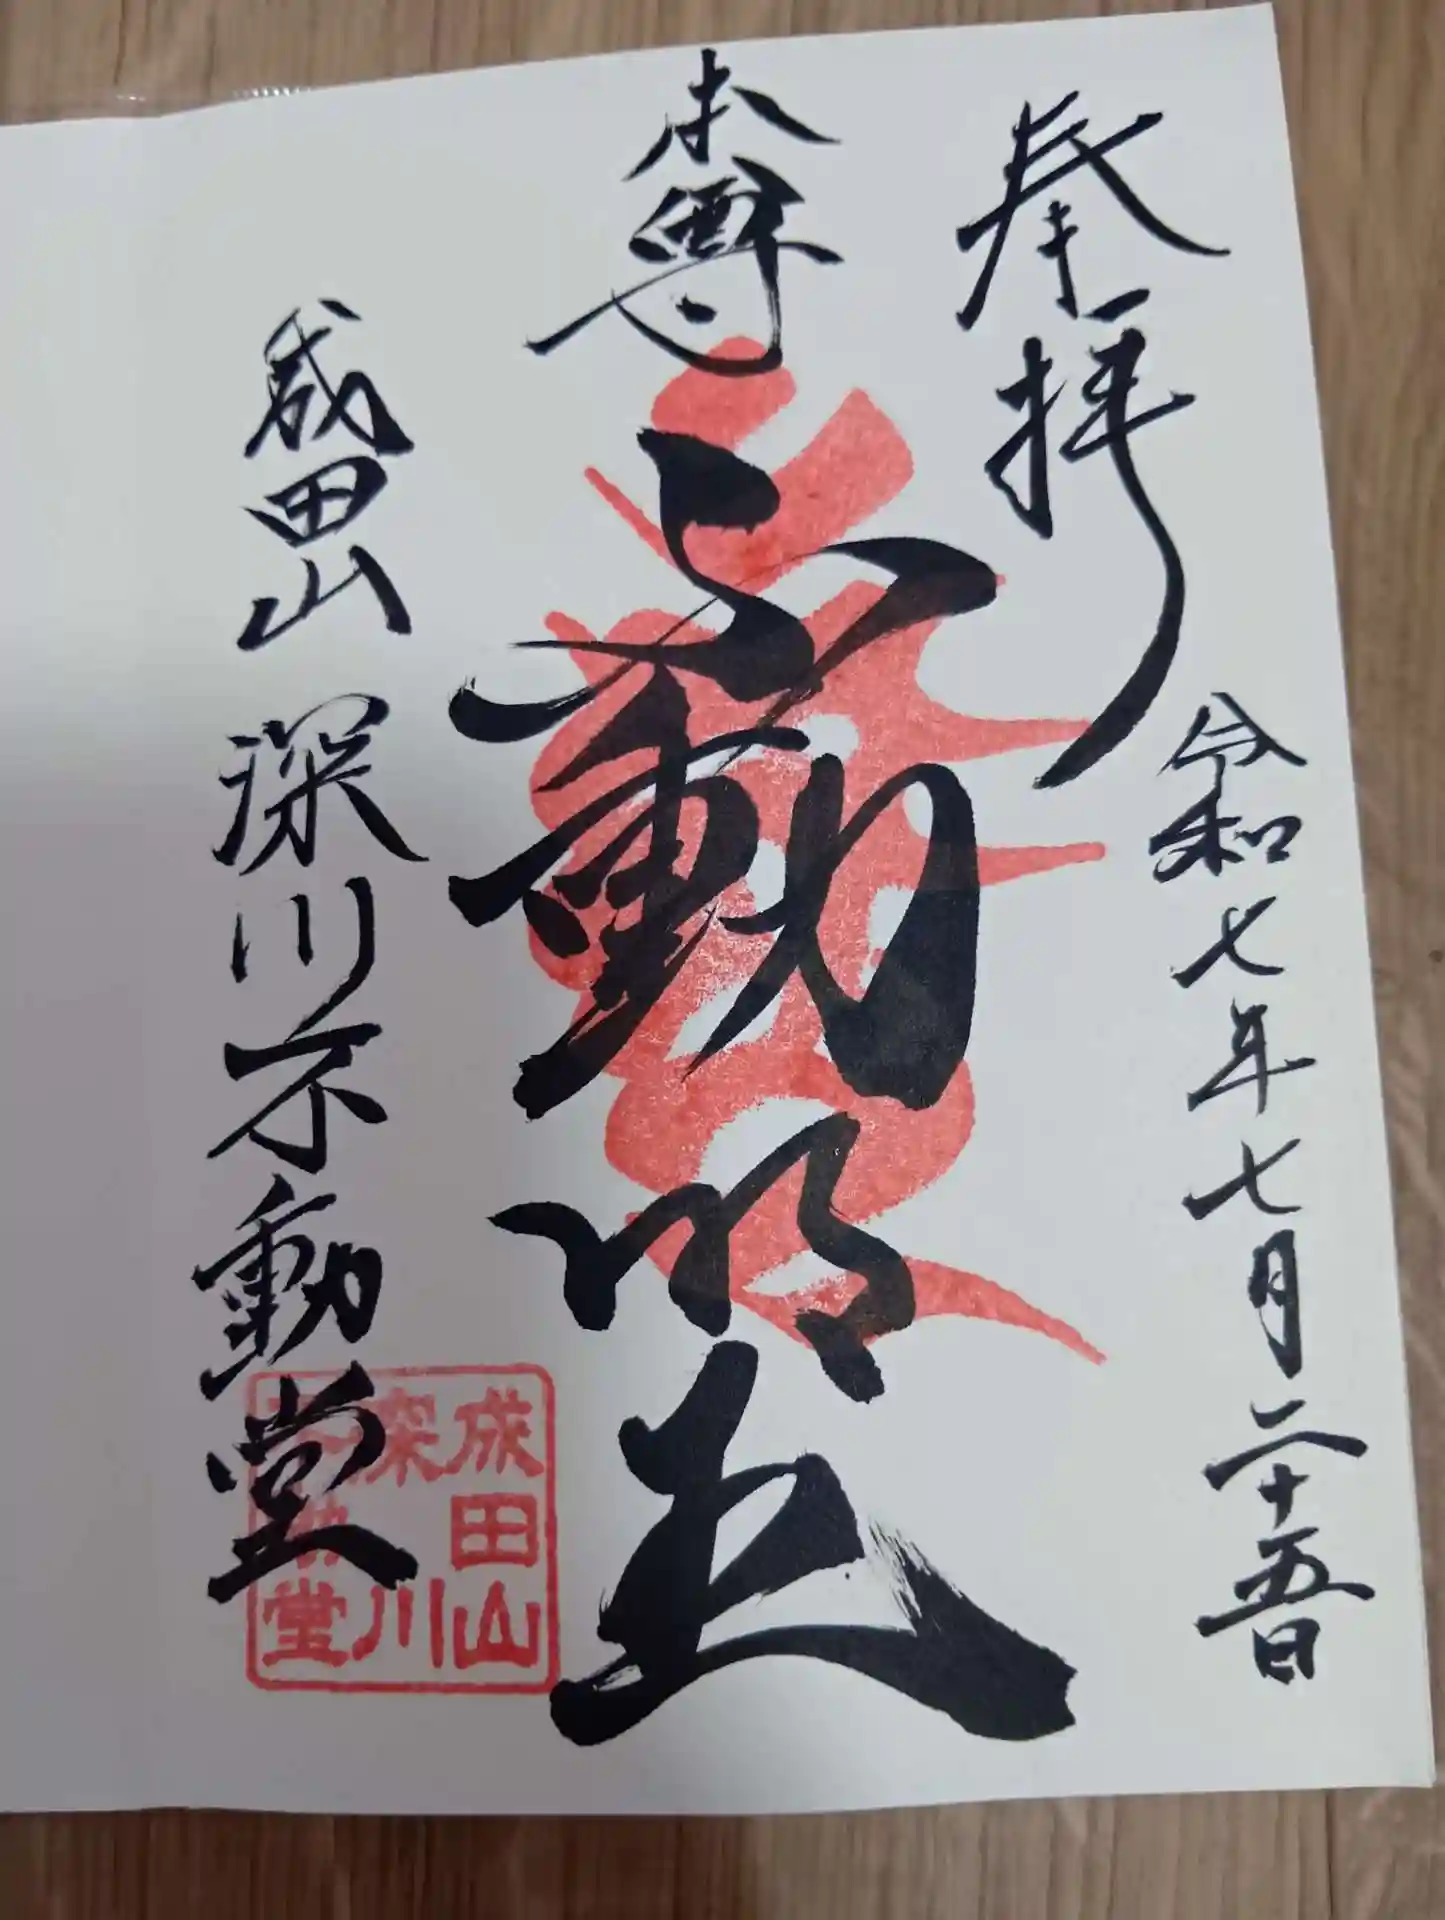 奉拝
令和七年七月二十五日
本尊
不動明王
成田山 深川不動堂
成田山
深川
不動堂